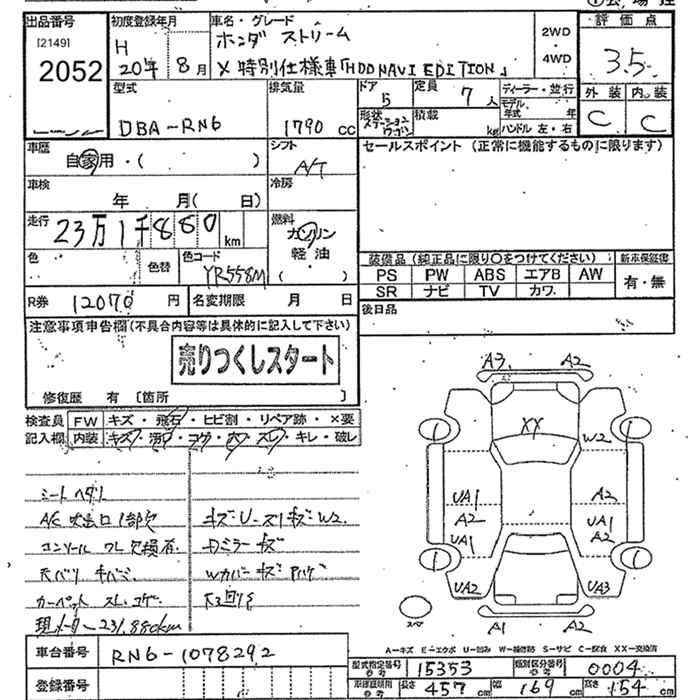 出品番号
[2149]
2052
初度登録年月
H
20年 8月
車名・グレード
ホンダ ストリーム
X 特別仕様車「HDDNAVI EDITION」
2WD
・
4WD
評価点
3.5
外装 内装
C C
型式
DBA-RN6
排気量
1790 cc
ドア
5
形状
ステーションワゴン
定員
7 人
積載
kg
ディーラー・並行
モデル
年式 年
ハンドル 左・右
車歴
自家用・( )
シフト
A/T
車検
年 月( 日)
冷房
走行
23万1千880 km
燃料
ガソリン
軽油
( )
色
色替
色コード
YR558M
R券 12070 円
名変期限 月 日
セールスポイント (正常に機能するものに限ります)
装備品 (純正品に限り○をつけてください)
新車保証書
PS PW ABS エアB AW
SR ナビ TV カワ
有・無
後日品
注意事項申告欄(不具合内容等は具体的に記入して下さい)
売りつくしスタート
修復歴 有 [箇所 ]
検査員 FW キズ・飛石・ヒビ割・リペア跡・×要
記入欄 内装 キズ・汚レ・コゲ・穴・スレ・キレ・破レ
シートヘタリ
A/C吹出口1部欠
コンソール フレ欠損有
天バリ キバミ
カーペット スレ、コゲ
現メーター231,880km
キズU-スリキズW2.
Dミラーキズ
Wカバーキズ
A3 A2
XX
W2
UA1 A2
A2 UA1
UA1 A2
UA2 UA3
A1 A2
スペア
A-キズ E-エクボ U-凹み W-補修跡 S-サビ C-腐食 XX-交換済
車台番号 RN6-1078292
登録番号
型式指定番号
参考
15353
類別区分番号
参考
0004
参考
長さ 457 cm
幅 169 cm
高さ 154 cm